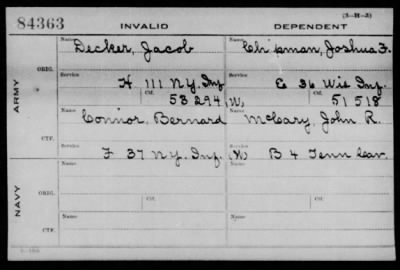 84363 INVALID DEPENDENT (3-H-3)
Name Decker, Jacob Name Chipman, Joshua F.
ARMY
ORIG. Service H 111 N.Y. Inf. Service E 36 Wis Inf.
Ctf. 53294 (W) Ctf. 51518
Name Connor, Bernard Name McCary, John R.
CTF. F 37 N.Y. Inf. (W) B 4 Tenn Cav.
NAVY
Name Name
ORIG. Service Ctf. Service Ctf.
Name Name
CTF.